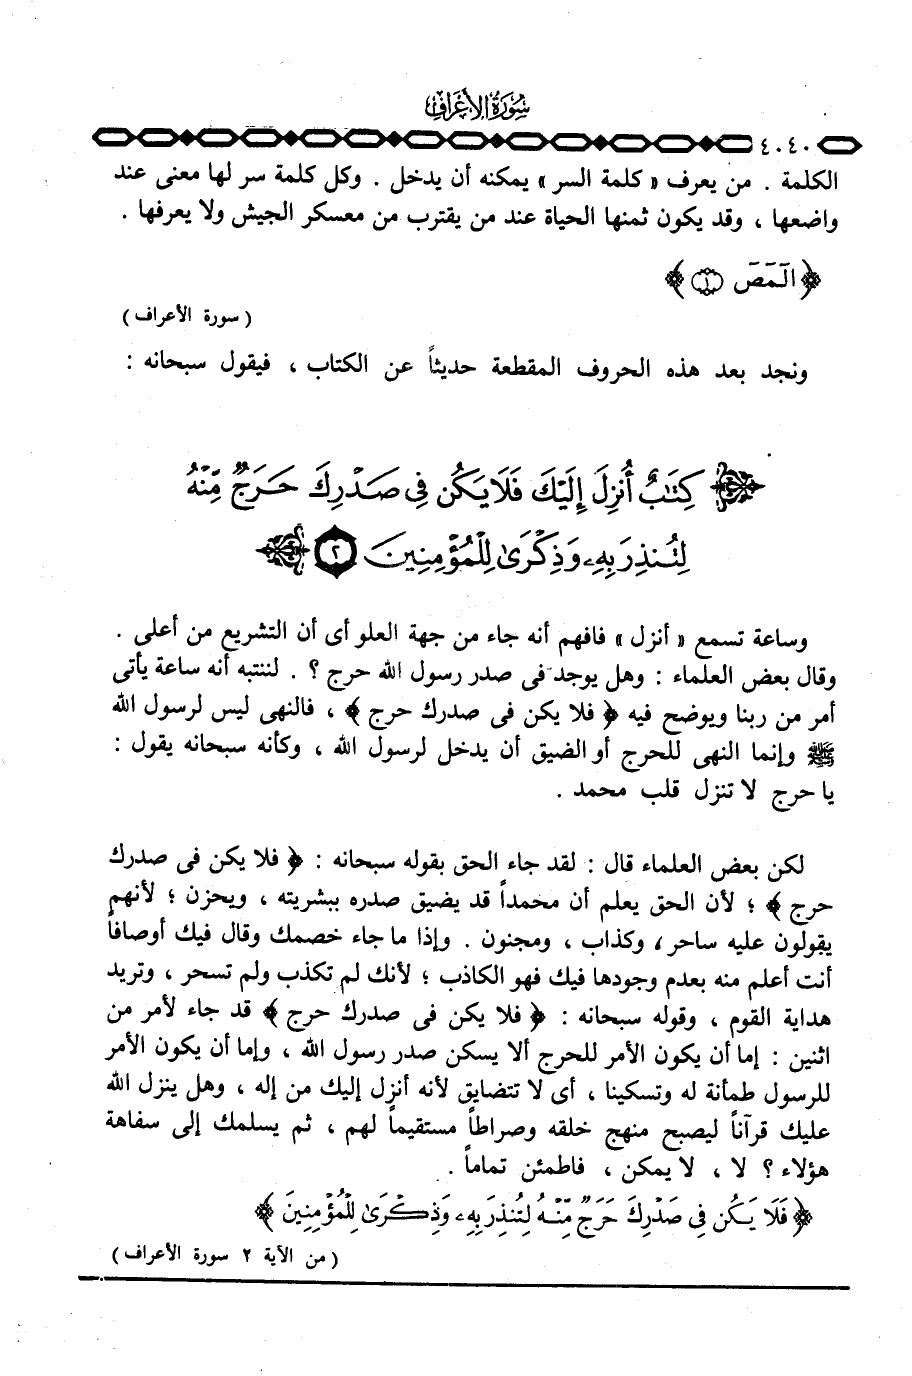 سورة الأعراف
٤٠٤٠
الكلمة . من يعرف « كلمة السر » يمكنه أن يدخل . وكل كلمة سر لها معنى عند
واضعها ، وقد يكون ثمنها الحياة عند من يقترب من معسكر الجيش ولا يعرفها .
﴿ الٓمٓصٓ ١ ﴾
( سورة الأعراف )
ونجد بعد هذه الحروف المقطعة حديثاً عن الكتاب ، فيقول سبحانه :
﴿ كِتَٰبٌ أُنزِلَ إِلَيْكَ فَلَا يَكُن فِى صَدْرِكَ حَرَجٌ مِّنْهُ
لِتُنذِرَ بِهِۦ وَذِكْرَىٰ لِلْمُؤْمِنِينَ ٢ ﴾
وساعة تسمع « أنزل » فافهم أنه جاء من جهة العلو أى أن التشريع من أعلى .
وقال بعض العلماء : وهل يوجد فى صدر رسول الله حرج ؟ . لننتبه أنه ساعة يأتى
أمر من ربنا ويوضح فيه ﴿ فلا يكن فى صدرك حرج ﴾ ، فالنهى ليس لرسول الله
ﷺ وإنما النهى للحرج أو الضيق أن يدخل لرسول الله ، وكأنه سبحانه يقول :
يا حرج لا تنزل قلب محمد .
لكن بعض العلماء قال : لقد جاء الحق بقوله سبحانه : ﴿ فلا يكن فى صدرك
حرج ﴾ ؛ لأن الحق يعلم أن محمداً قد يضيق صدره ببشريته ، ويحزن ؛ لأنهم
يقولون عليه ساحر ، وكذاب ، ومجنون . وإذا ما جاء خصمك وقال فيك أوصافاً
أنت أعلم منه بعدم وجودها فيك فهو الكاذب ؛ لأنك لم تكذب ولم تسحر ، وتريد
هداية القوم ، وقوله سبحانه : ﴿ فلا يكن فى صدرك حرج ﴾ قد جاء لأمر من
اثنين : إما أن يكون الأمر للحرج ألا يسكن صدر رسول الله ، وإما أن يكون الأمر
للرسول طمأنة له وتسكينا ، أى لا تتضايق لأنه أنزل إليك من إله ، وهل ينزل الله
عليك قرآناً ليصبح منهج خلقه وصراطاً مستقيماً لهم ، ثم يسلمك إلى سفاهة
هؤلاء ؟ لا ، لا يمكن ، فاطمئن تماماً .
﴿ فَلَا يَكُن فِى صَدْرِكَ حَرَجٌ مِّنْهُ لِتُنذِرَ بِهِۦ وَذِكْرَىٰ لِلْمُؤْمِنِينَ ﴾
( من الآية ٢ سورة الأعراف )